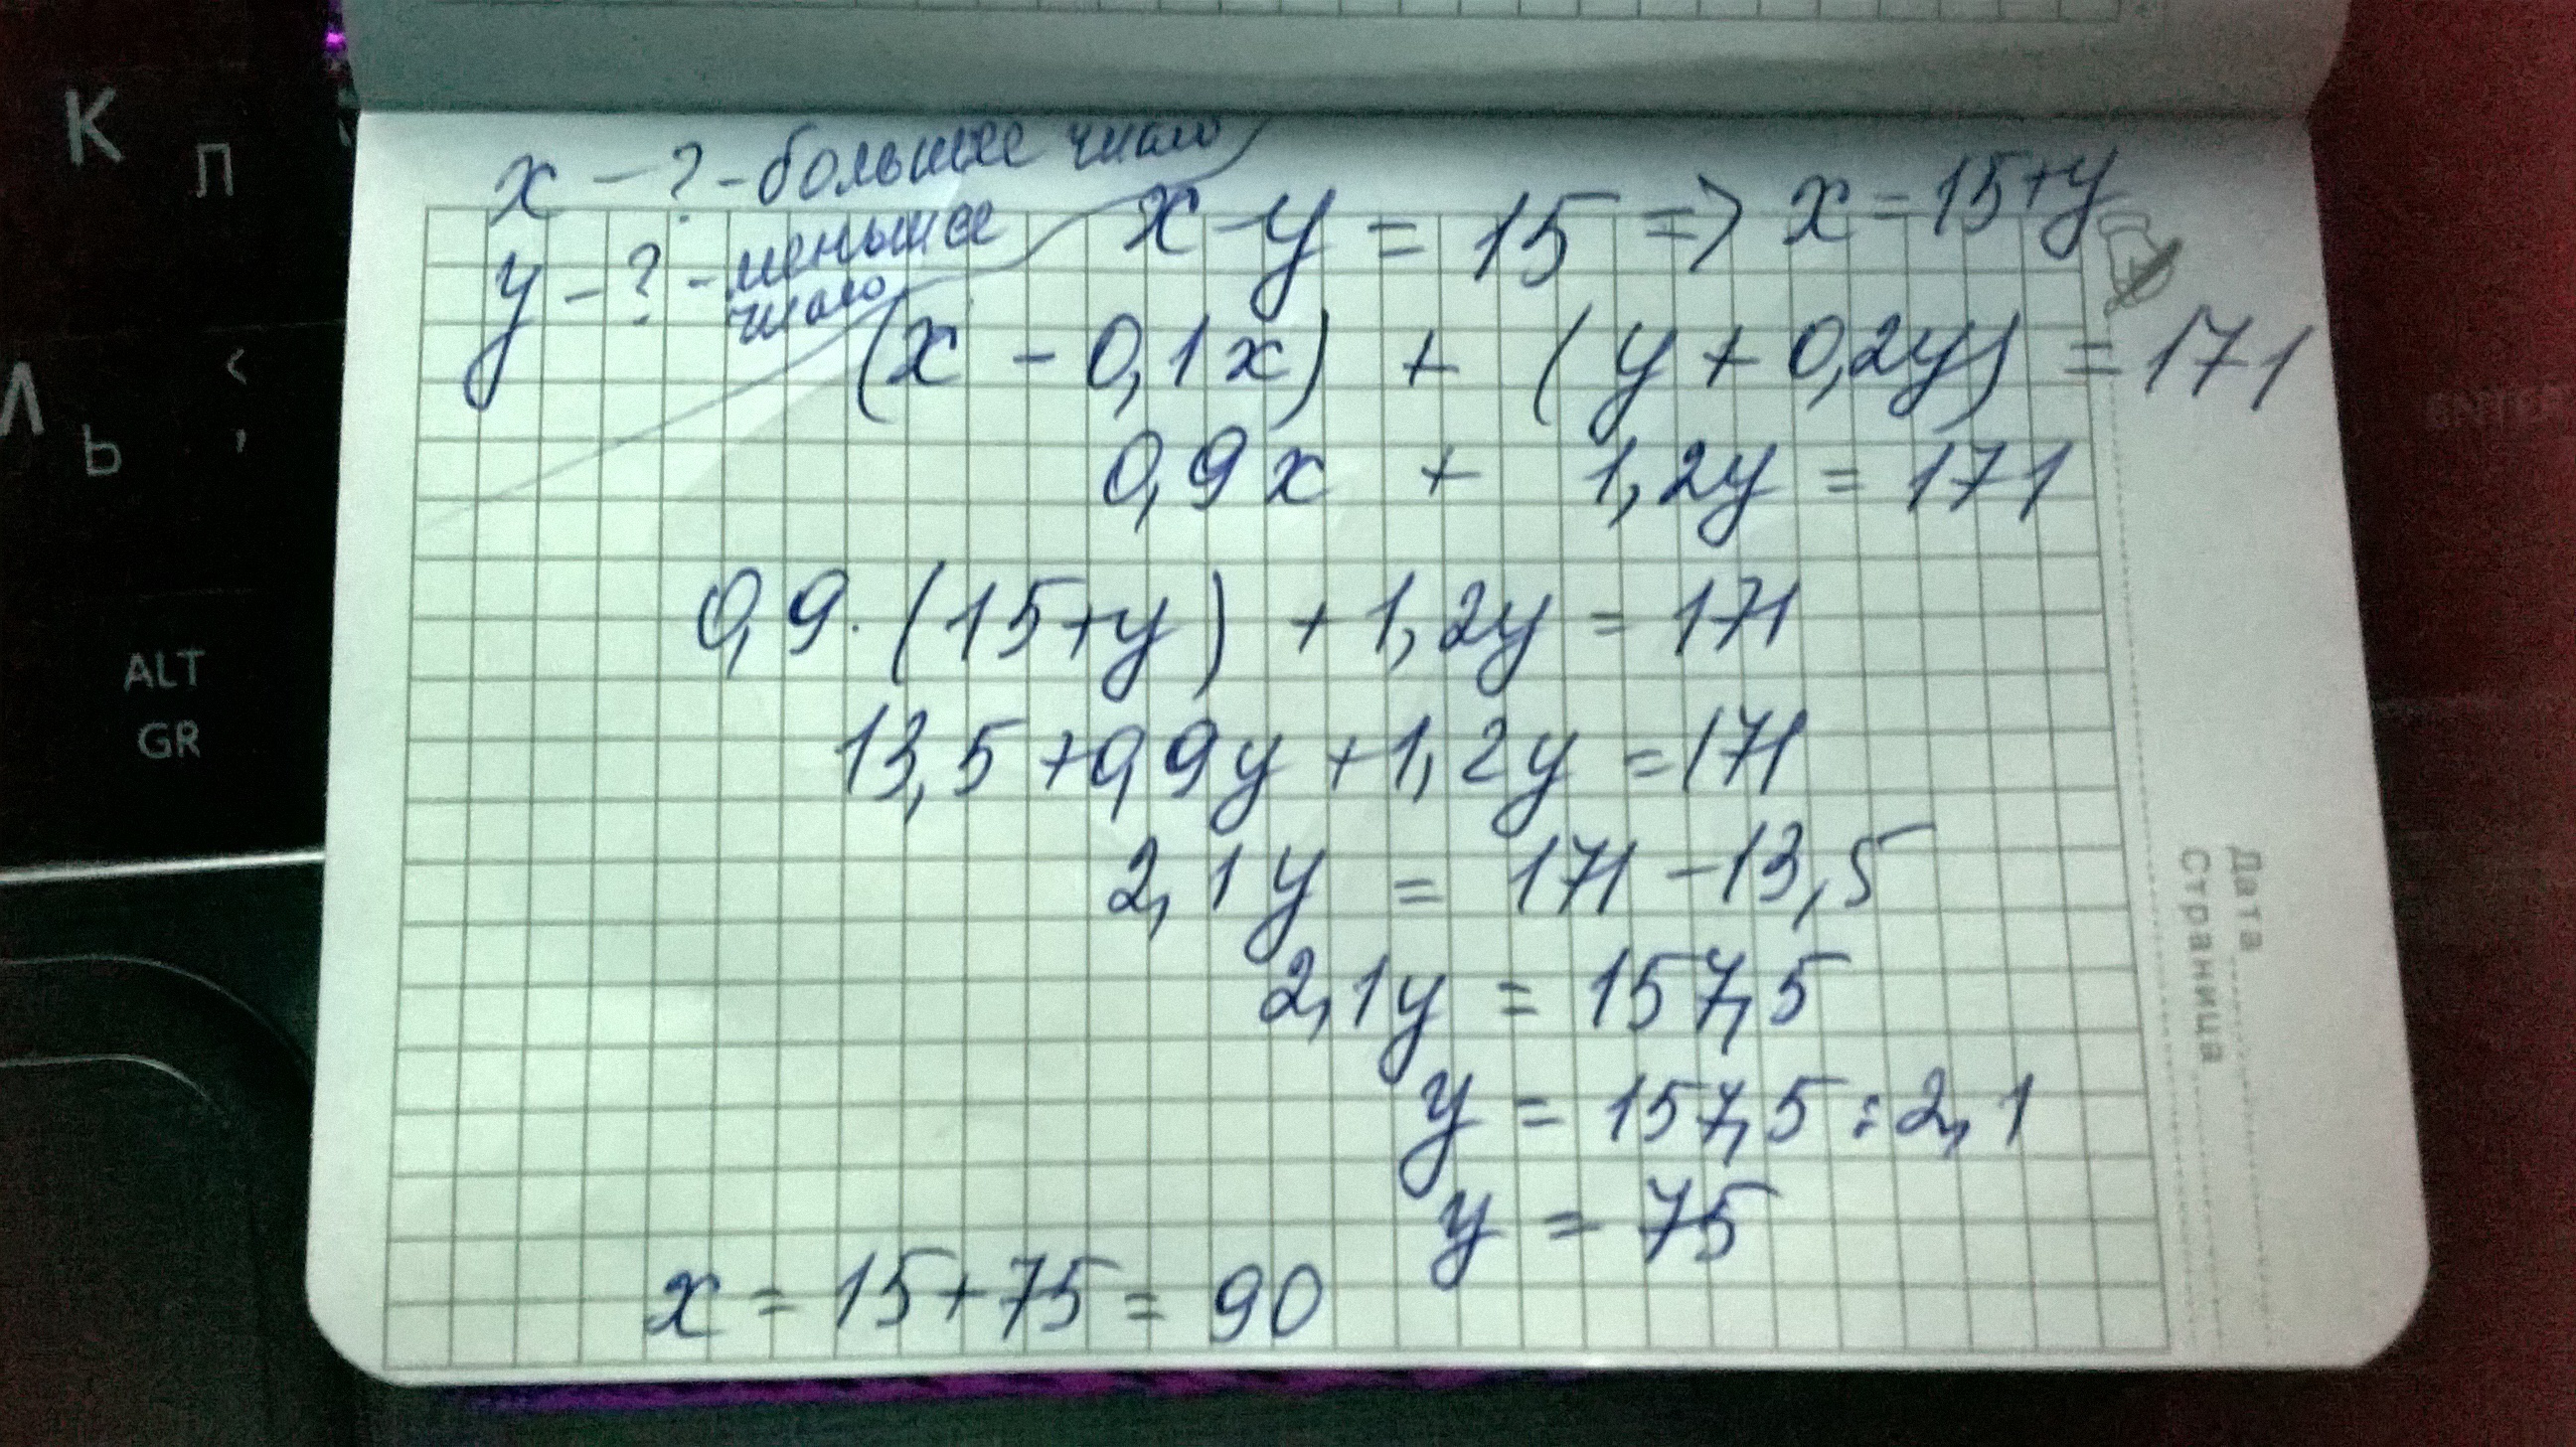 x - ? - большее число
y - ? - меньшее
число
x - y = 15 => x = 15+y
(x - 0,1x) + (y + 0,2y) = 171
0,9x + 1,2y = 171
0,9·(15+y) + 1,2y = 171
13,5+0,9y+1,2y=171
2,1y = 171-13,5
2,1y = 157,5
y = 157,5:2,1
y = 75
x = 15+75 = 90
К
Л
Ь
<
,
ALT
GR
ENTER
Дата
Страница